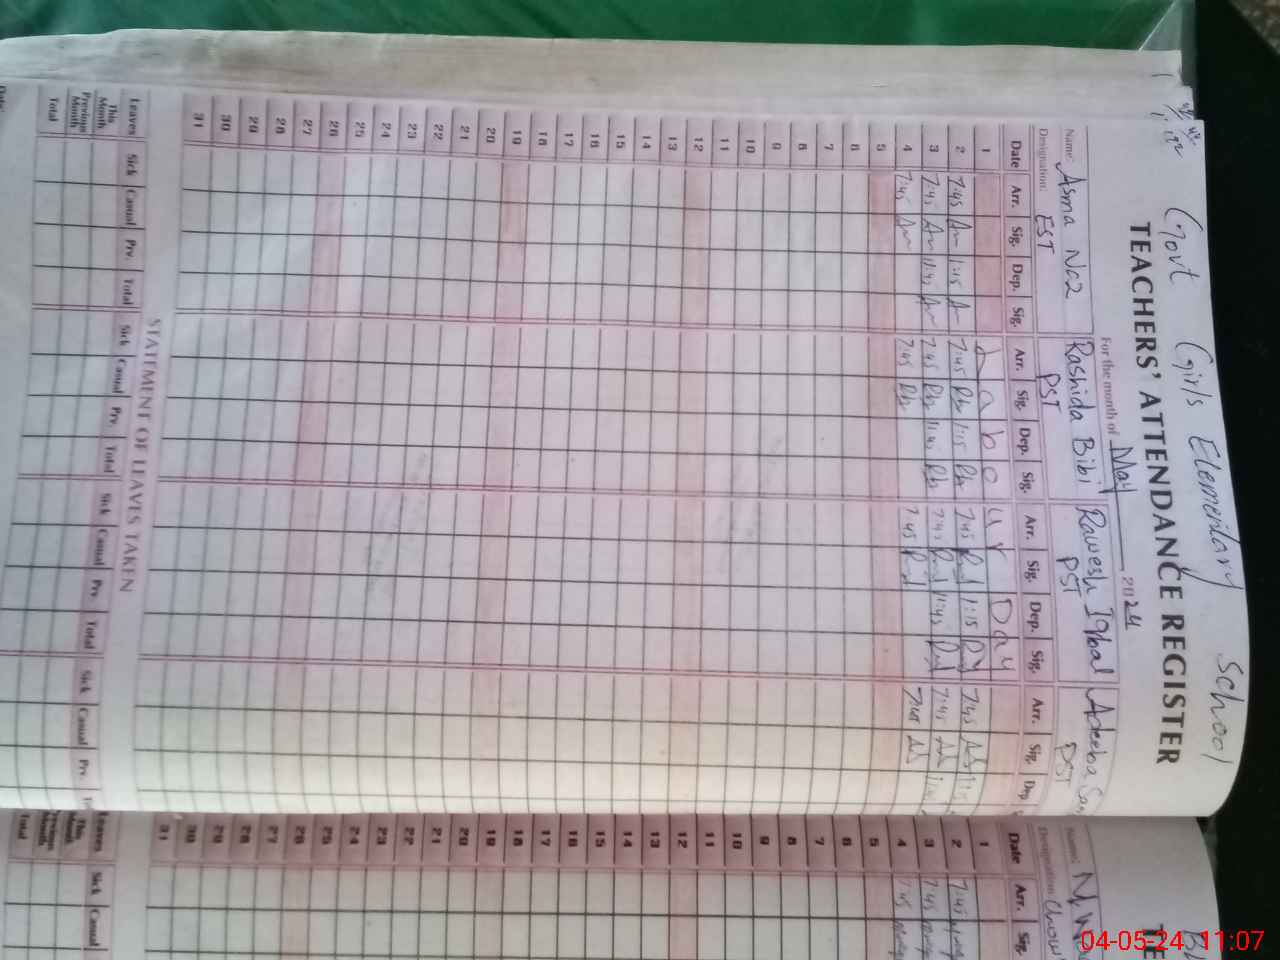 Govt Girls Elementary School
TEACHERS' ATTENDANCE REGISTER
For the month of May 2024
Name: Asma No2 Rashida Bibi Rawesh Iqbal Adeeba
Designation: EST PST PST PST
Date Arr. Sig. Dep. Sig. Arr. Sig. Dep. Sig. Arr. Sig. Dep. Sig. Arr. Sig. Dep
1 Labour Day
2 7:45 1:15 7:45 1:15 7:45 1:15 7:45 1:15
3 7:45 11:45 7:45 11:45 7:45 11:45 7:45
4 7:45 7:45 7:45 7:45
5
6
7
8
9
10
11
12
13
14
15
16
17
18
19
20
21
22
23
24
25
26
27
28
29
30
31
STATEMENT OF LEAVES TAKEN
Leaves Sick Casual Prv. Total Sick Casual Prv. Total Sick Casual Prv. Total Sick Casual Prv.
This Month
Previous Month
Total
Date:
Name:
Designation:
Date Arr. Sig.
1
2 7:45
3 7:45
4 7:45
5
6
7
8
9
10
11
12
13
14
15
16
17
18
19
20
21
22
23
24
25
26
27
28
29
30
31
Leaves Sick Casual
This Month
Previous Month
Total
04-05-24 11:07